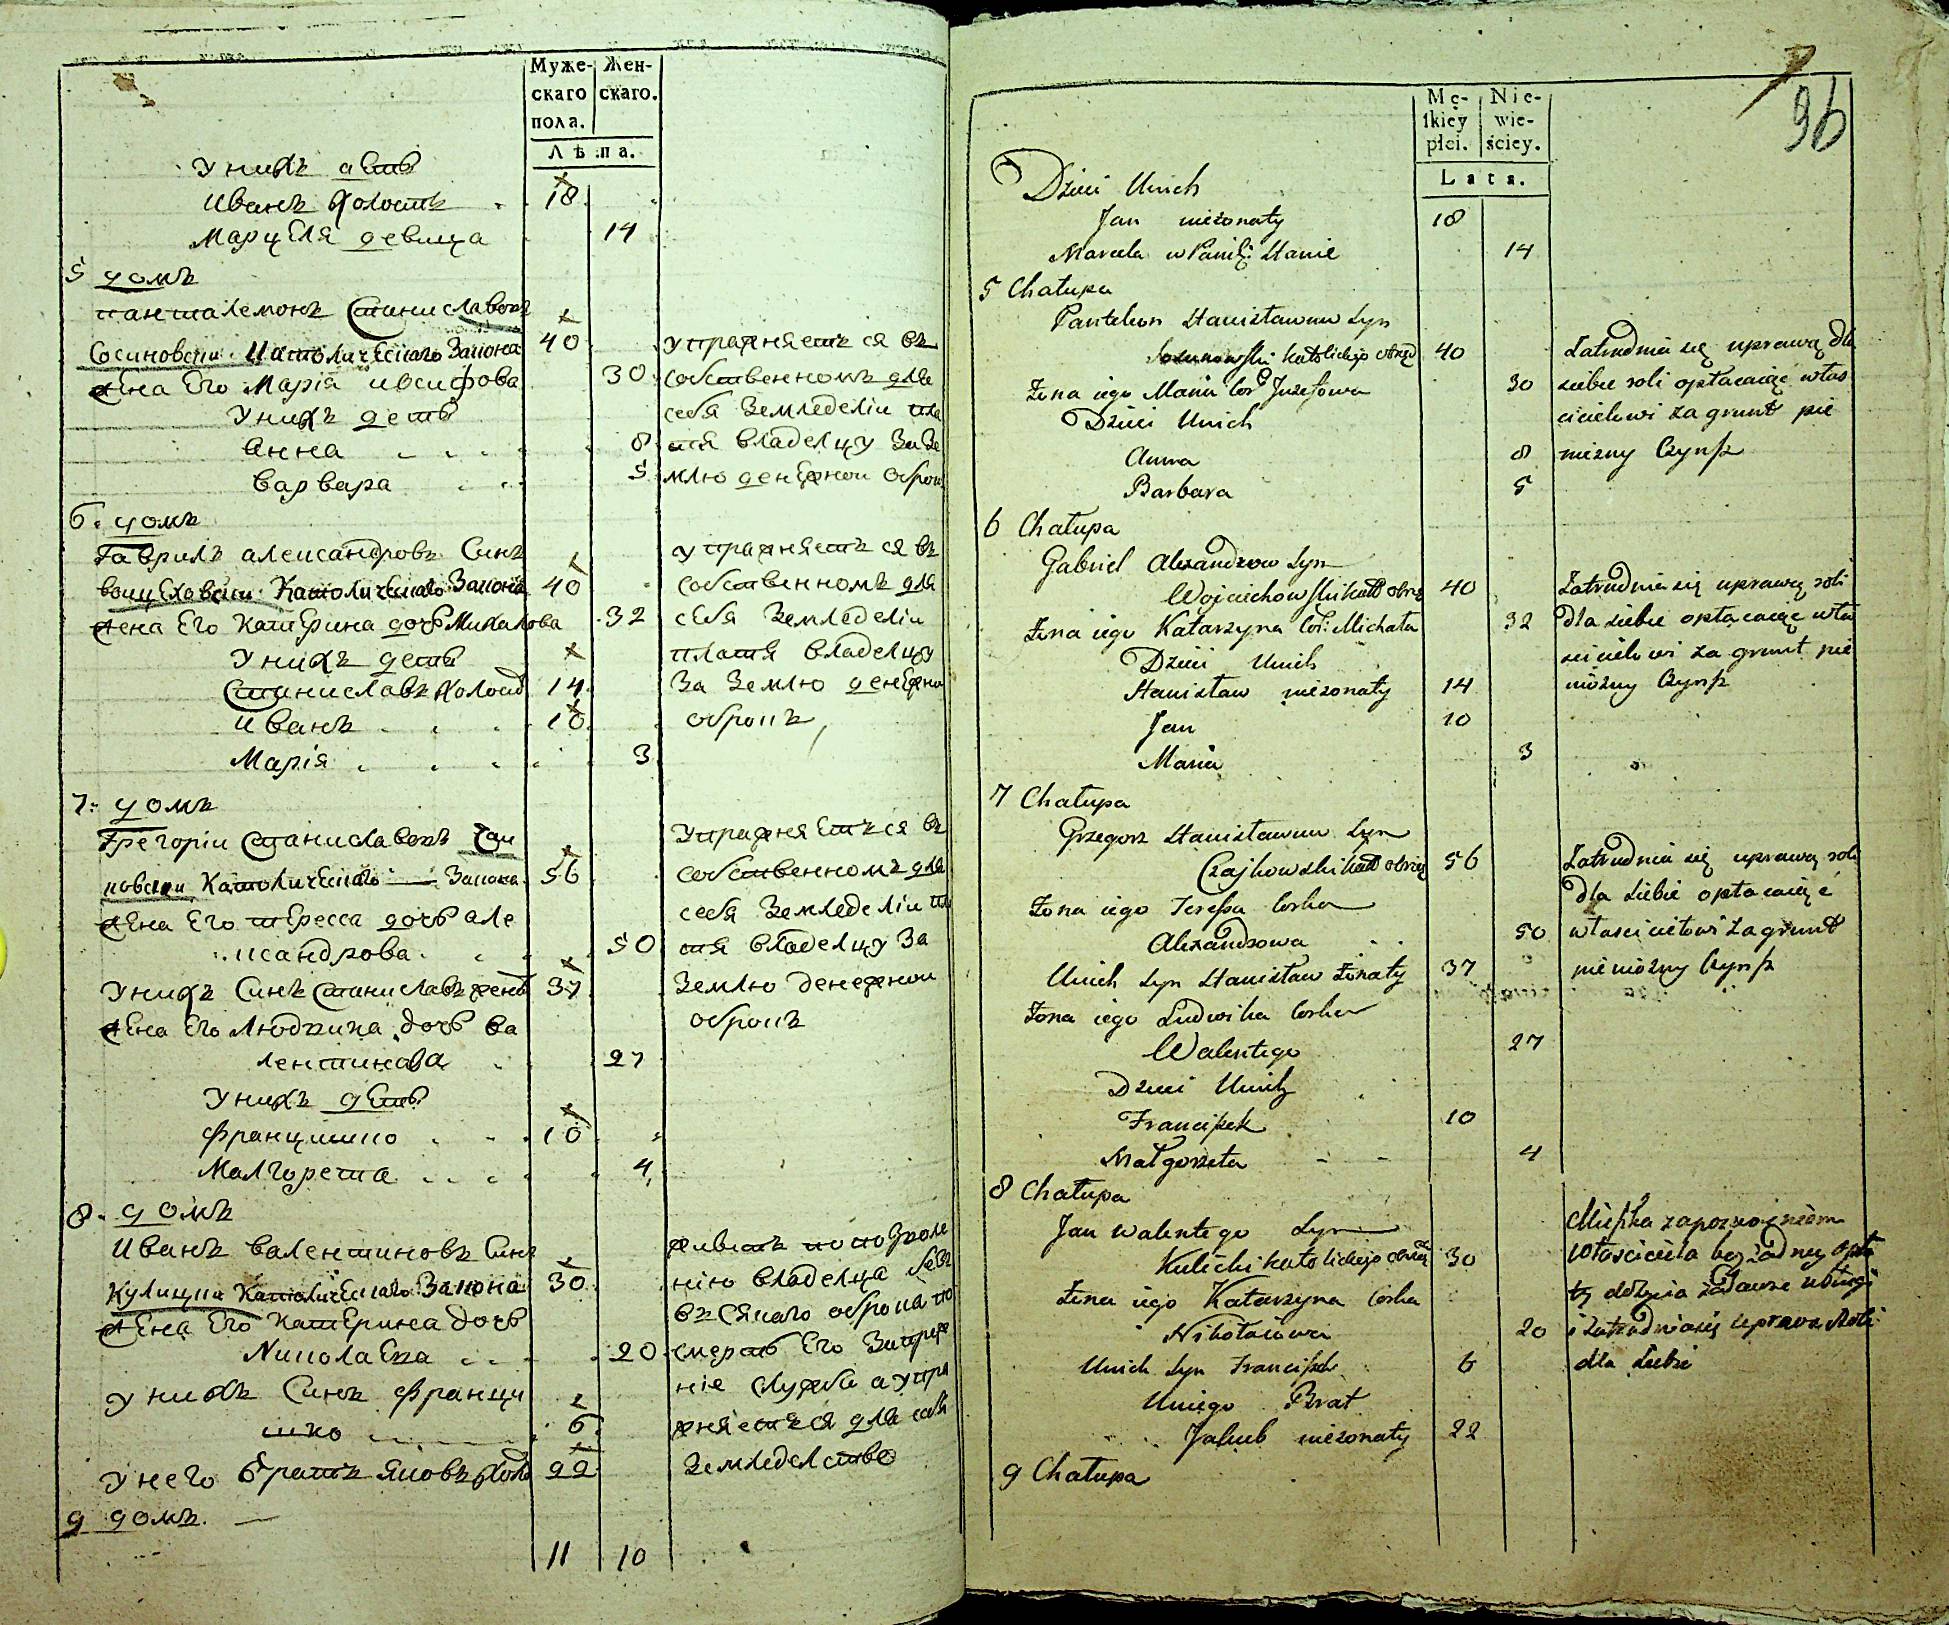 Муже-
скаго
пола.
Жен-
скаго.
Лѣта.
У нихъ дети
Иванъ холостъ 18
Марцеля девица 14
5 домъ
Панталемонъ Станиславовъ
Сосновски Католическаго Закона 40
жена Его Марія Иосифова 30
У нихъ дети
Анна 8
Варвара 5
упражняется въ
собственномъ для
себя Земледеліи пла
тя владелцу За Зе
млю денежнои оброкъ
6. домъ
Гаврилъ Александровъ Синъ
Воицеховски Католическаго Закона 40
жена Его Катерина дочь Михалова 32
У нихъ дети
Станиславъ холост 14
Иванъ 10
Марія 3
упражняется въ
собственномъ для
себя Земледеліи
платя владелцу
За Землю денежно
оброкъ
7. домъ
Грегоріи Станиславовъ Чаи
ковски Католическаго Закона 56
жена Его Тересса дочь Але
ксандрова 50
У нихъ Синъ Станиславъ женат 37
жена Его Людвика дочь Ва
лентинова 27
У нихъ дети
Францишко 10
Малгорета 4
Упражняется въ
собственномъ для
себя Земледеліи пла
тя владелцу За
Землю денежнои
оброкъ
8. домъ
Иванъ Валентиновъ Синъ
Кулицки Католическаго Закона 30
жена Его Катерина дочь
Николаева 20
У нихъ Синъ Франци
шко 6
У него братъ Яковъ холо 22
живетъ по позволе
нію владелца безъ
всякаго оброка по
смерть Его
ніе службы а упра
жняется для себя
Земледелство
9 домъ.
11 10
96
Mę-
ſkiey
płci.
Nie-
wie-
ściey.
Lata.
Dzieci Unich
Jan nieżonaty 18
Marcela w Panień: Stanie 14
5 Chałupa
Pantelion Stanisławow Syn
Sosnowski katolickiego obrzęd 40
Żona iego Maria Cor Juzefowa 30
Dzieci Unich
Anna 8
Barbara 5
Zatrudnia się uprawą dla
siebie roli opłacaiąc włas
cicielowi za grunt pie
niezny Czynſz
6 Chałupa
Gabriel Alexandrow Syn
Woyciechowski kato obrzą 40
Żona iego Katarzyna Cor: Michała 32
Dzieci Unich
Stanisław nieżonaty 14
Jan 10
Maria 3
Zatrudnia się uprawą roli
dla siebie opłacaiąc wła
scicielowi za grunt pie
niężny Czynſz
7 Chałupa
Grzegorz Stanisławow Syn
Czajkowski kato obrzą 56
Żona iego Tereſsa Corka
Alexandrowa 50
Unich Syn Stanisław Żonaty 37
Żona iego Ludwika Corka
Walentego 27
Dzieci Unich
Franciſzek 10
Małgorzeta 4
Zatrudnia się uprawą roli
dla siebie opłacaiąc
własicielowi za grunt
pieniężny Czynſz
8 Chałupa
Jan Walentego Syn
Kulicki katolickiego obrzą 30
Żona iego Katarzyna Corka
Nikołaiowa 20
Unich Syn Franciſzek 6
Uniego Brat
Jakub nieżonaty 22
Mieſzka za pozwoleniem
Własciciela bez żadney opła
ty
i Zatrudnia się uprawą Roli
dla Siebie
9 Chałupa